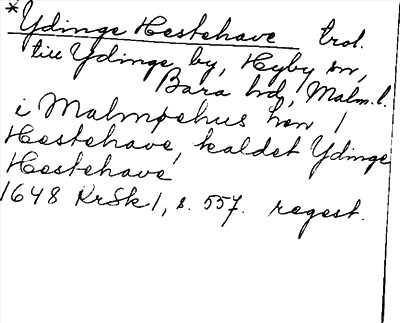 *Ydinge Hestehave trol.
till Ydinge by, Hyby sn,
Bara hd, Malm. l.
i Malmøehus len /
Hestehave, kaldet Ydinge
Hestehave
1648 KrSk 1, s. 557. regest.